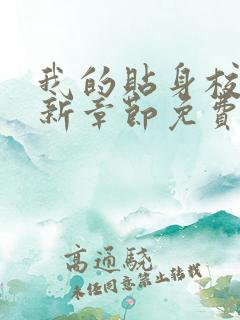 我的貼身校
新章節免費
高通驍
未經同意禁止轉載